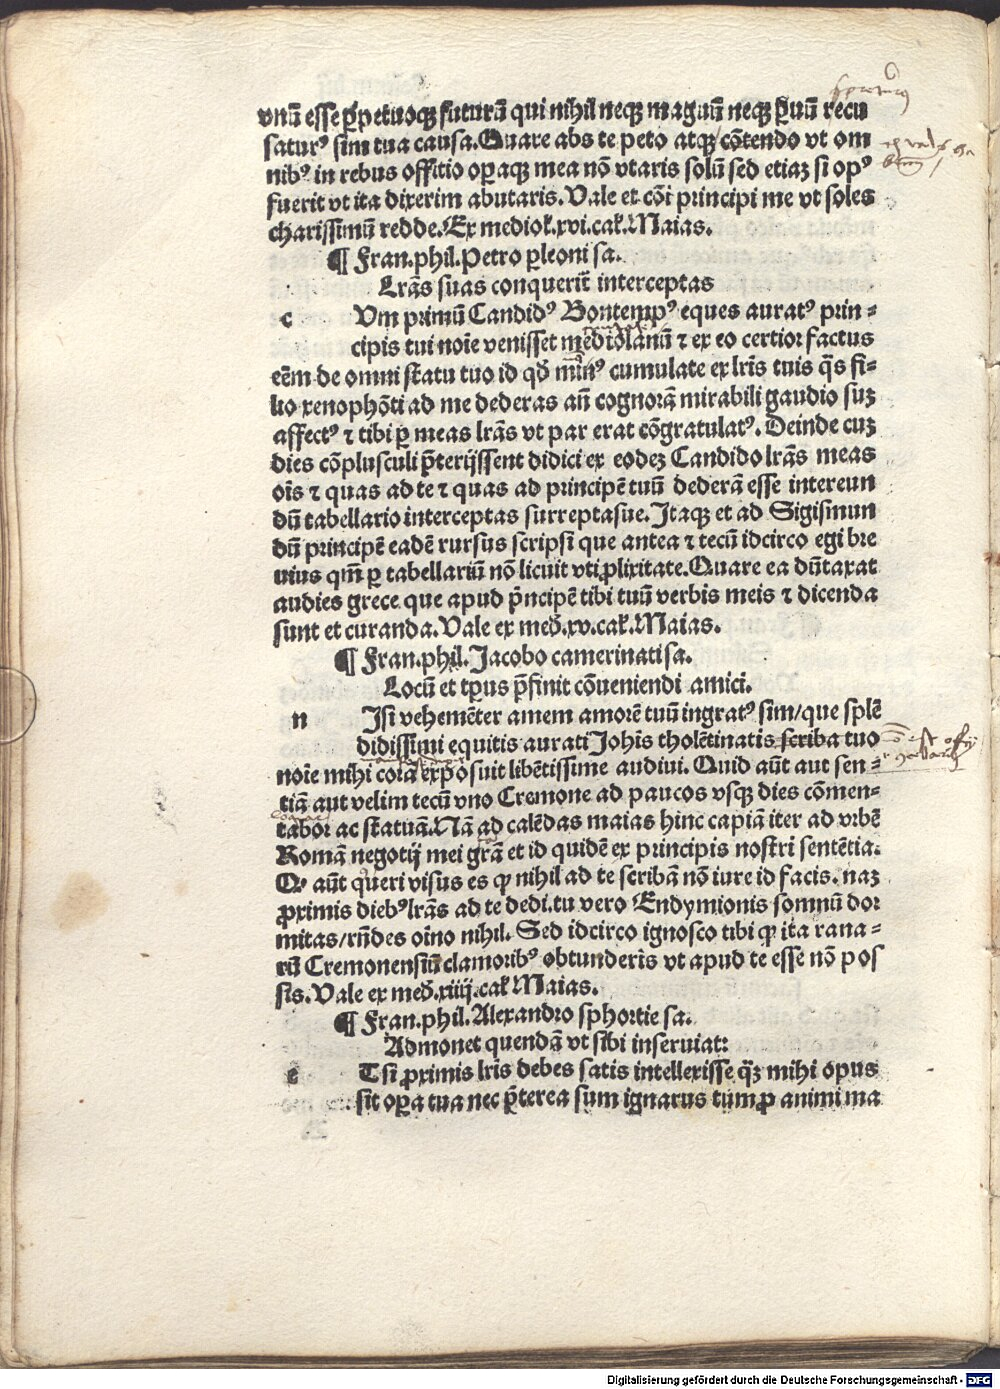 vnū esse ꝑpetuoqꝫ futurū qui nihil neqꝫ maguū neqꝫ ꝑuū recu
saturꝰ sim tua causa. Quare abs te peto atqꝫ cōtendo vt om
nibꝰ in rebus offitio oꝑaqꝫ mea nō vtaris solū sed etiaꝫ si opꝰ
fuerit vt ita dixerim abutaris. Vale et cōi principi me vt soles
charissimū redde. Ex mediol. xvi. cal. Maias.
¶ Fran. phil. Petro ꝑleoni sa.
Lr̄as suas conquerit̄ interceptas
c Vm primū Candidꝰ Bontempꝰ eques auratꝰ prin-
cipis tui noīe venisset mediolanū ⁊ ex eo certior factus
eēm de omni statu tuo id qd̄ cumulate ex lr̄is tuis q̄s fi-
lio xenophōti ad me dederas an̄ cognorā mirabili gaudio suꝫ
affectꝰ ⁊ tibi ꝑ meas lr̄as vt par erat cōgratulatꝰ. Deinde cuꝫ
dies cōplusculi p̄terijssent didici ex eodeꝫ Candido lr̄as meas
oīs ⁊ quas ad te ⁊ quas ad principē tuū dederā esse intereun
dū tabellario interceptas surreptasue. Itaqꝫ et ad Sigismun
dū principē eadē rursus scripsi que antea ⁊ tecū idcirco egi bre
uius qm̄ ꝑ tabellariū nō licuit vti ꝓlixitate. Quare ea dūtaxat
audies grece que apud p̄ncipē tibi tuū verbis meis ⁊ dicenda
sunt et curanda. Vale ex med̄. xv. cal. Maias.
¶ Fran. phil. Jacobo camerinati sa.
Locū et tp̄us p̄finit cōueniendi amici.
n Isi vehemēter amem amorē tuū ingratꝰ sim/que splē
didissimi equitis aurati Johīs tholētinatis scriba tuo
noīe mihi corā exposuit libētissime audiui. Quid aūt aut sen-
tiā aut velim tecū vno Cremone ad paucos vsqꝫ dies cōmen-
tabor ac statuā. Nā ad calēdas maias hinc capiā iter ad vrbē
Romā negotij mei gr̄a et id quidē ex principis nostri sentētia.
Qꝙ aūt queri visus es ꝙ nihil ad te scribā nō iure id facis. naꝫ
ꝓximis diebꝰ lr̄as ad te dedi. tu vero Endymionis somnū dor
mitas/rn̄des oīno nihil. Sed idcirco ignosco tibi ꝙ ita rana-
rū Cremonensiū clamoribꝰ obtunderis vt apud te esse nō pos
sis. Vale ex med̄. xiiij. cal. Maias.
¶ Fran. phil. Alexandro sphortie sa.
Admonet quendā vt sibi inseruiat:
e Tsi ꝓximis lr̄is debes satis intellexisse q̄ꝫ mihi opus
sit oꝑa tua nec p̄terea sum ignarus tum ꝓ animi ma
Digitalisierung gefördert durch die Deutsche Forschungsgemeinschaft - DFG